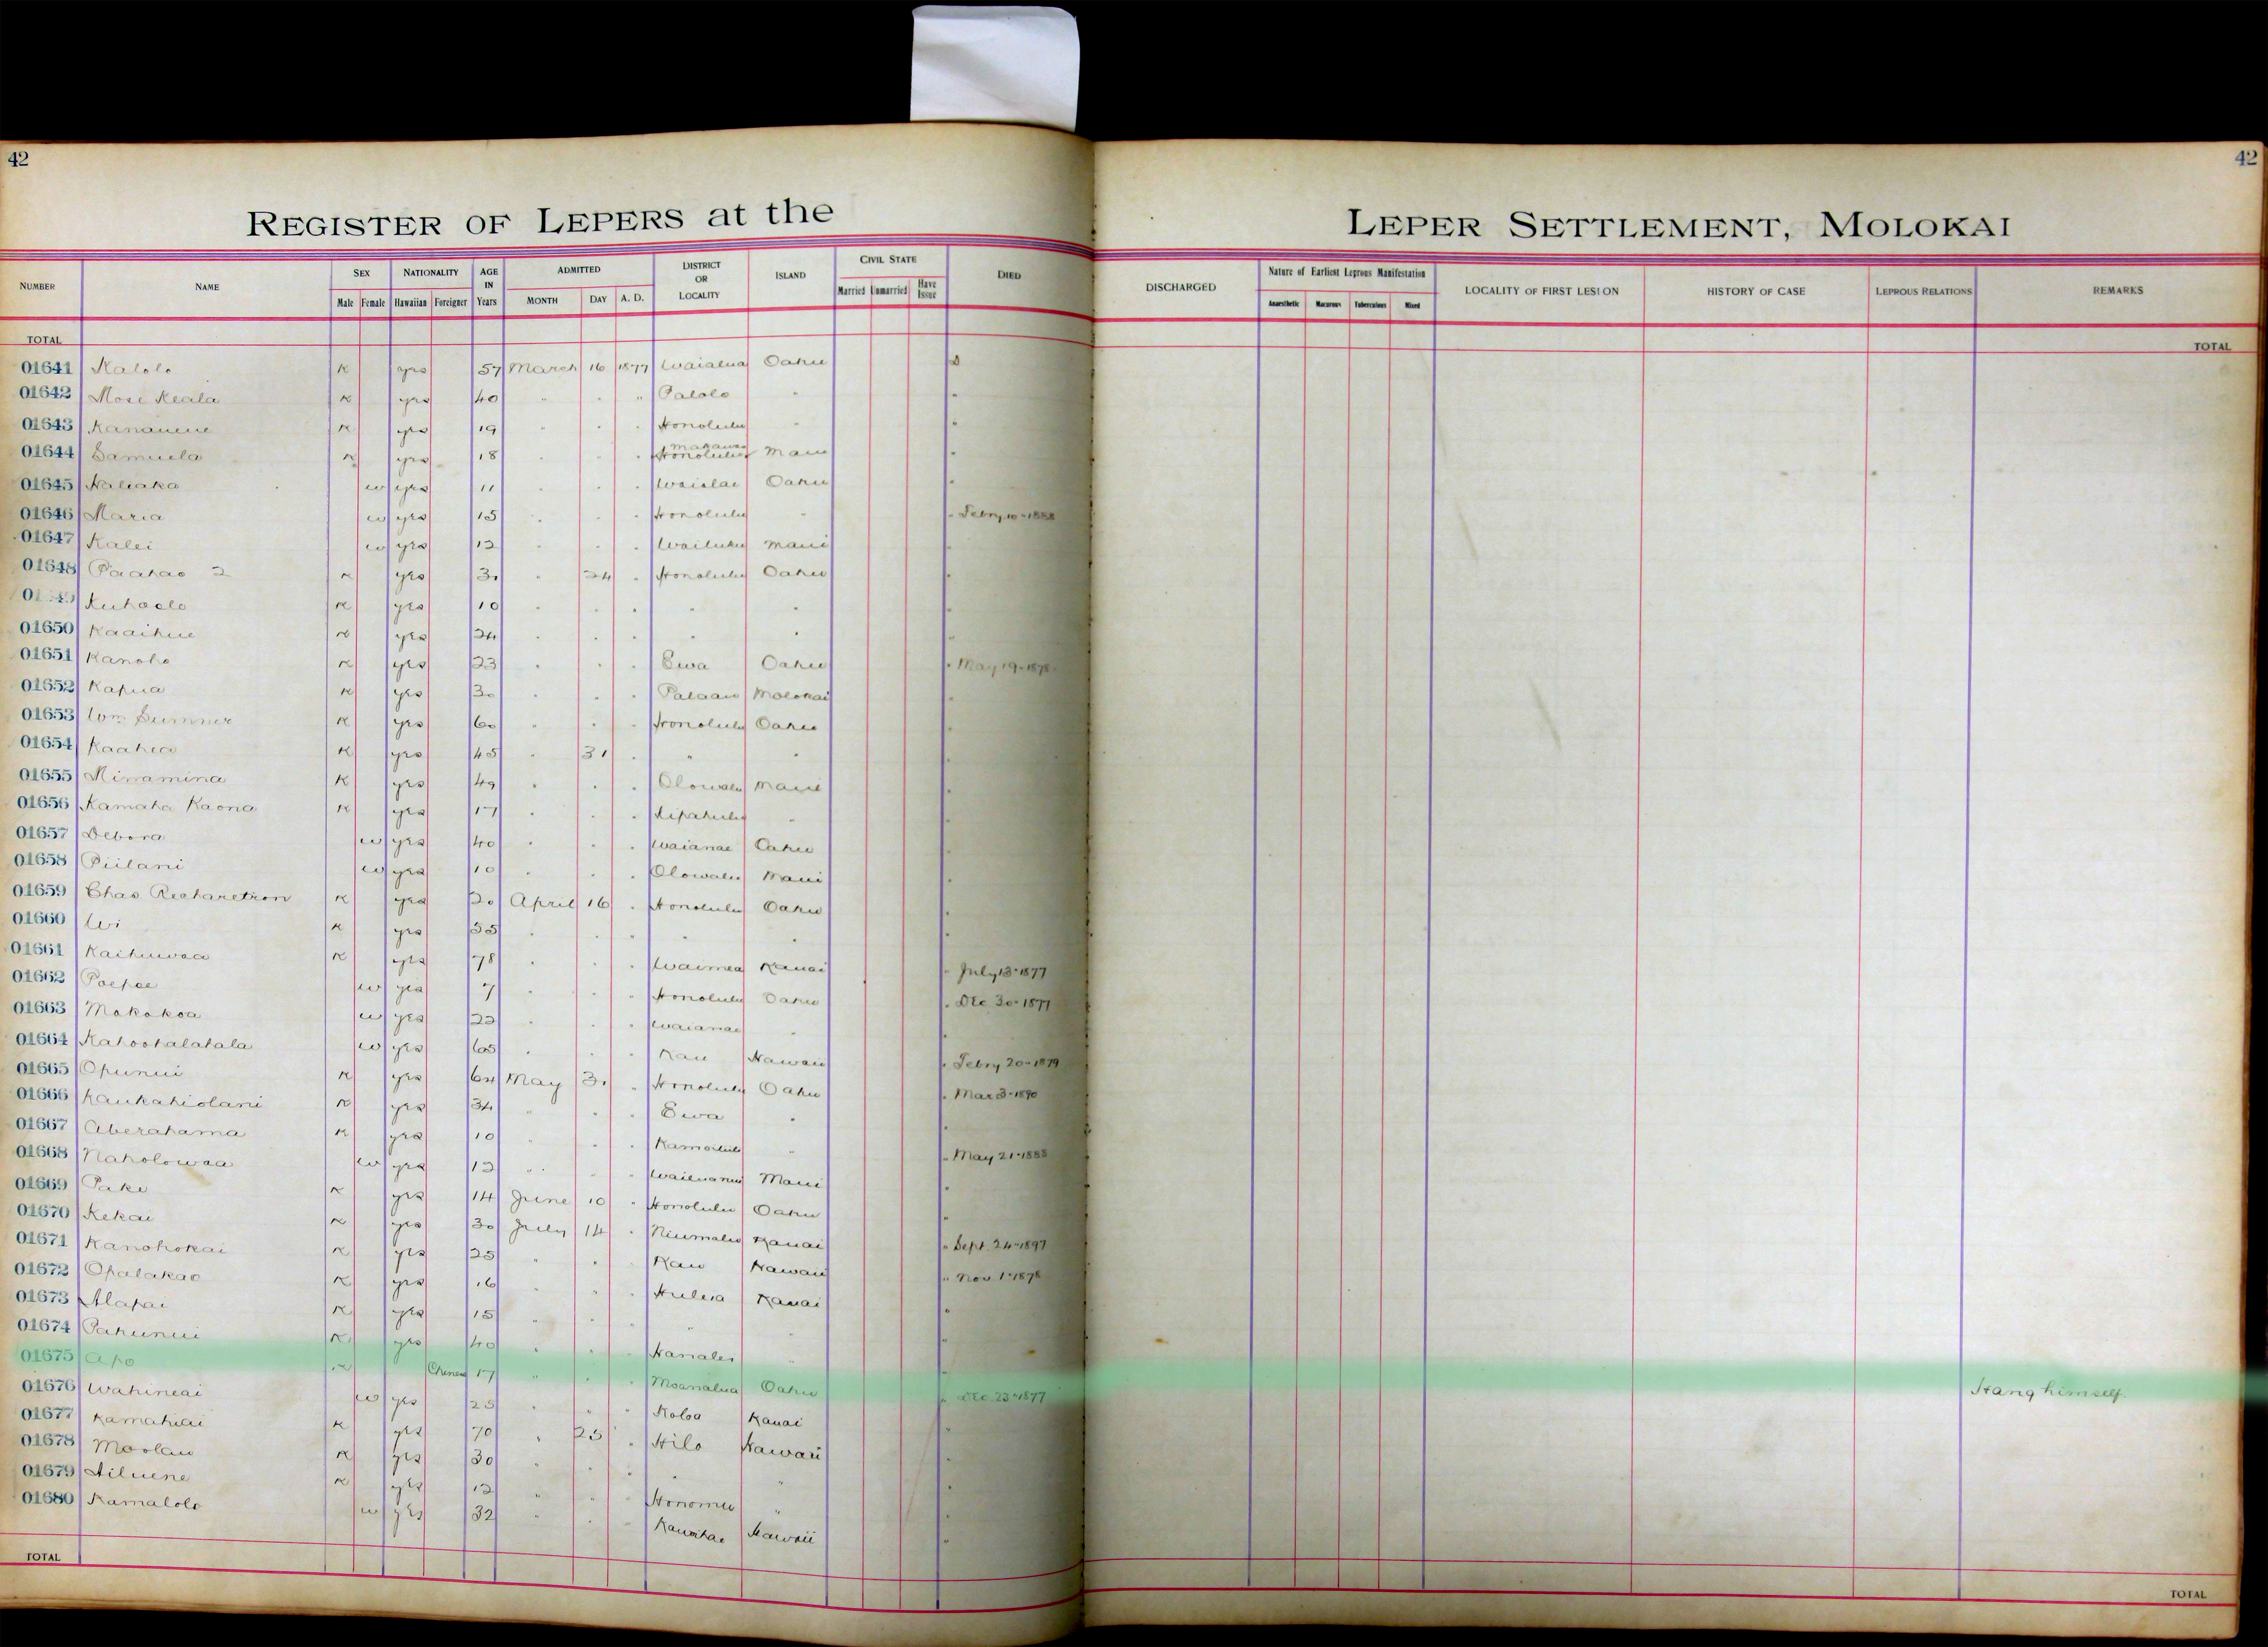 42
42
REGISTER OF LEPERS at the LEPER SETTLEMENT, MOLOKAI
NUMBER NAME SEX Male Female NATIONALITY Hawaiian Foreigner AGE IN Years ADMITTED MONTH DAY A. D. DISTRICT OR LOCALITY ISLAND CIVIL STATE Married Unmarried Have Issue DIED DISCHARGED Nature of Earliest Leprous Manifestation Anaesthetic Macurous Tuberculous Mixed LOCALITY OF FIRST LESION HISTORY OF CASE LEPROUS RELATIONS REMARKS
TOTAL TOTAL
01641 Kalolo K yes 57 March 16 1877 Waialua Oahu D
01642 Mose Keala K yes 40 " " " Palolo " "
01643 Kananuene K yes 19 " " " Honolulu " "
01644 Samuela K yes 18 " " " Makawao Honolulu Maui "
01645 Naliaka w yes 11 " " " Waialae Oahu "
01646 Maria w yes 15 " " " Honolulu " " Febry 10-1888
01647 Kalei w yes 12 " " " Wailuku Maui "
01648 Paahao 2 K yes 30 " 24 " Honolulu Oahu "
Kuhaelo K yes 10 " " " " " "
01650 Kaaihue K yes 24 " " " " " "
01651 Kanoho K yes 23 " " " Ewa Oahu " May 19-1878
01652 Kapua K yes 30 " " " Palaau Molokai "
01653 Wm Sumner K yes 60 " " " Honolulu Oahu "
01654 Kaahea K yes 45 " 31 " " " "
01655 Minamina K yes 49 " " " Olowalu Maui "
01656 Kamaha Kaona K yes 17 " " " Kipahulu " "
01657 Debora w yes 40 " " " Waianae Oahu "
01658 Piilani w yes 10 " " " Olowalu Maui "
01659 Chas Richardson K yes 20 April 16 " Honolulu Oahu "
01660 Wi K yes 35 " " " " " "
01661 Kaihuwaa K yes 78 " " " Waimea Kauai " July 13-1877
01662 Poepoe w yes 7 " " " Honolulu Oahu " Dec 30-1877
01663 Makakoa w yes 22 " " " Waianae " "
01664 Kahoohalahala w yes 65 " " " Kau Hawaii " Febry 20-1879
01665 Opunui K yes 64 May 31 " Honolulu Oahu " Mar 3-1890
01666 Kaukahiolani K yes 34 " " " Ewa " "
01667 Aberahama K yes 10 " " " Kamoiliili " " May 21-1888
01668 Naholowaa w yes 12 " " " Wailuanui Maui "
01669 Pake K yes 14 June 10 " Honolulu Oahu "
01670 Kekai K yes 30 July 14 " Niumalu Kauai " Sept 24-1897
01671 Kanohokai K yes 25 " " " Kau Hawaii " Nov 1-1878
01672 Opalakao K yes 16 " " " Huleia Kauai "
01673 Alapai K yes 15 " " " " " "
01674 Pahunui K yes 40 " " " Hanalei " "
01675 Apo K Chinese 17 " " " Moanalua Oahu " Dec 23-1877 Hang himself.
01676 Wahineai w yes 25 " " " Koloa Kauai "
01677 Kamahiai K yes 70 " 25 " Hilo Hawaii "
01678 Moolau K yes 30 " " " " " "
01679 Hiluene K yes 12 " " " Honomu " "
01680 Kamalolo w yes 32 " " " Kawaihae Hawaii "
TOTAL TOTAL